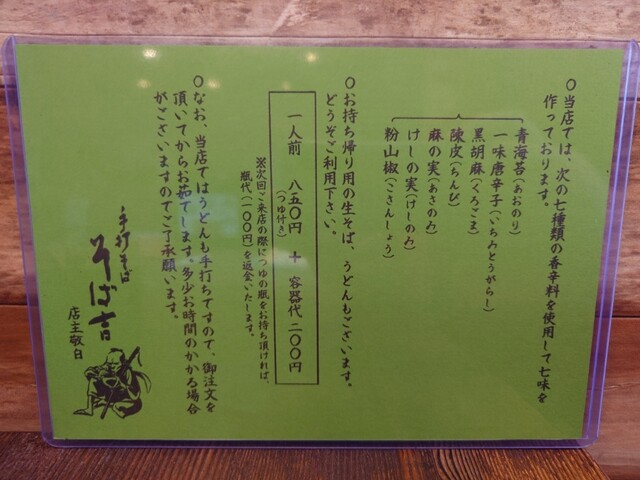 〇当店では、次の七種類の香辛料を使用して七味を
作っております。
青海苔(あおのり)
一味唐辛子(いちみとうがらし)
黒胡麻(くろごま)
陳皮(ちんぴ)
麻の実(あさのみ)
けしの実(けしのみ)
粉山椒(こさんしょう)
〇お持ち帰り用の生そば、うどんもございます。
どうぞご利用下さい。
一人前 八五〇円 + 容器代 二〇〇円
(つゆ付き)
※次回ご来店の際につゆの瓶をお持ち頂ければ、
瓶代(一〇〇円)を返金いたします。
〇なお、当店ではうどんも手打ちですので、御注文を
頂いてからお茹でします。多少お時間のかかる場合
がございますのでご了承願います。
手打そば
そば吉
店主敬白